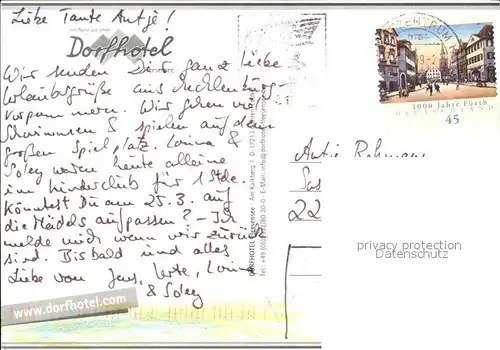 Liebe Tante Antje!
Dorfhotel
Wir senden Dir ganz liebe
Urlaubsgrüße aus Mecklenburg-
Vorpommern. Wir gehen viel
Schwimmen & spielen auf dem
großen Spielplatz. Lorina &
Soley waren heute alleine
im Kinderclub für 1 Stde.
Könntest Du am 25.3. auf
die Mädels aufpassen? - Ich
melde mich wenn wir zurück
sind. Bis bald und alles
Liebe von Jens,
& Soley
www.dorfhotel.com
DORFHOTEL Fleesensee · Am Kalkberg 1 · D-17213
ZENTRUM
1000 Jahre Fürth
DEUTSCHLAND
45
Antje
22
privacy protection
Datenschutz